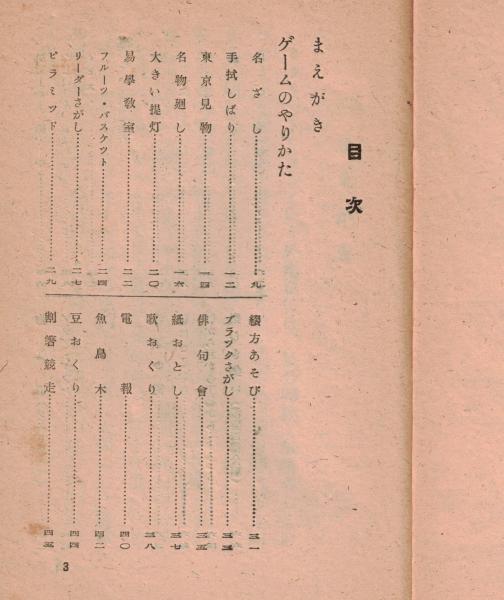 目次
まえがき
ゲームのやりかた
名ざし……九
手拭しばり……一二
東京見物……一四
名物廻し……一六
大きい提灯……二〇
易學教室……二二
フルーツ・バスケット……二四
リーダーさがし……二七
ピラミッド……二九
綴方あそび……三一
ブラックさがし……三三
俳句會……三五
紙おとし……三七
歌おくり……三八
電報……四〇
魚鳥木……四二
豆おくり……四四
割箸競走……四五
3